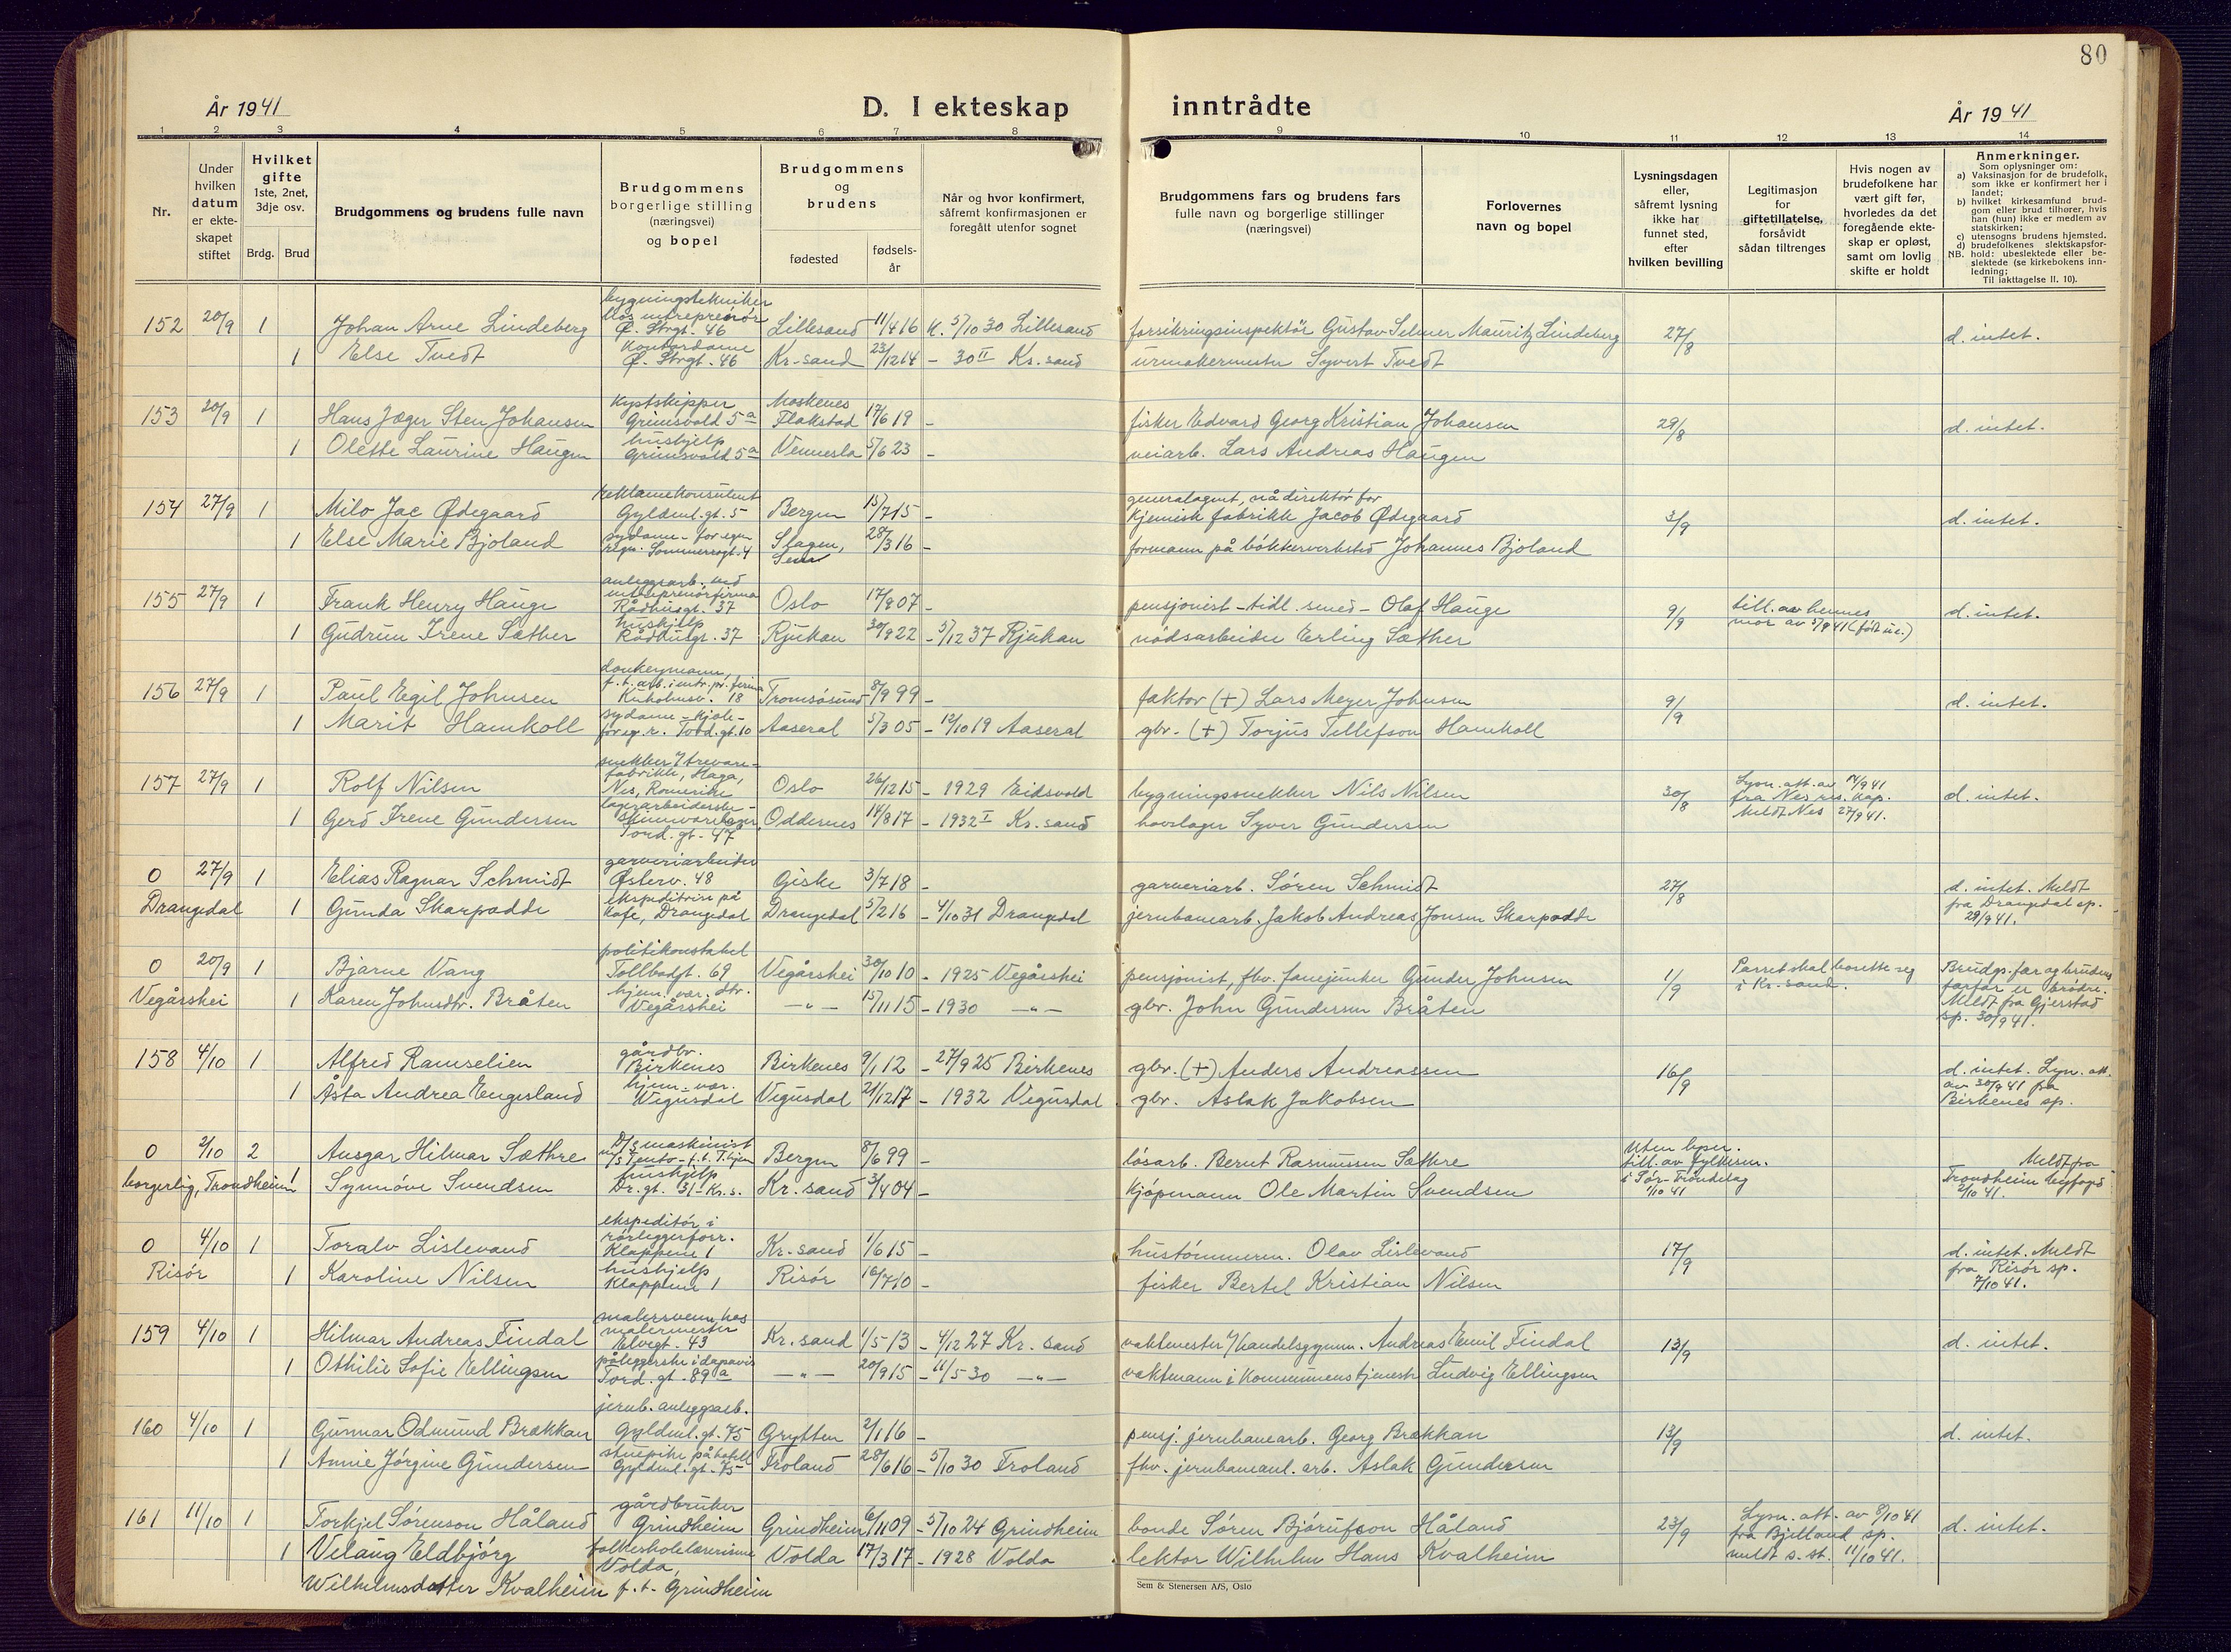 80
År 1941
D. I ekteskap
inntrådte
År 1941
1 2 3 4 5 6 7 8 9 10 11 12 13 14
Nr.
Under
hvilken
datum
er ekte-
skapet
stiftet
Hvilket
gifte
1ste, 2net,
3dje osv.
Brdg. Brud
Brudgommens og brudens fulle navn
Brudgommens
borgerlige stilling
(næringsvei)
og bopel
Brudgommens
og
brudens
fødested
fødsels-
år
Når og hvor konfirmert,
såfremt konfirmasjonen er
foregått utenfor sognet
Brudgommens fars og brudens fars
fulle navn og borgerlige stillinger
(næringsvei)
Forlovernes
navn og bopel
Lysningsdagen
eller,
såfremt lysning
ikke har
funnet sted,
efter
hvilken bevilling
Legitimasjon
for
giftetillatelse,
forsåvidt
sådan tiltrenges
Hvis nogen av
brudefolkene har
vært gift før,
hvorledes da det
foregående ekte-
skap er opløst,
samt om lovlig
skifte er holdt
Anmerkninger.
Som oplysninger om:
a) Vaksinasjon for de brudefolk,
som ikke er konfirmert her i
landet;
b) hvilket kirkesamfund brud-
gom eller brud tilhører, hvis
han (hun) ikke er medlem av
statskirken;
c) utensogns brudens hjemsted.
d) brudefolkenes slektskapsfor-
NB. hold: ubeslektede eller be-
slektede (se kirkebokens inn-
ledning;
Til iakttagelse II. 10).
bygningstekniker
hos entreprenör
152 20/9 1 Johan Arne Lindeberg Ø. Strgt. 46 Lillesand 11/4 16 K. 5/10 30 Lillesand forsikringsinspektör Gustav Selmer Mauritz Lindeberg 27/8 d. intet.
kontordame
1 Else Tvedt Ø. Strgt. 46 Kr.sand 23/12 14 - 30 II Kr.sand urmakermester Syvert Tvedt
kystskipper Moskenes
153 20/9 1 Hans Jæger Sten Johansen Grimsvold 5a Flakstad 17/6 19 - fisker Edvard Georg Kristian Johansen 29/8 d. intet.
hushjelp
1 Olette Laurine Haugen Grimsvold 5a Vennesla 5/6 23 - veiarb. Lars Andreas Haugen
reklamekonsulent generalagent, nå direktör for
154 27/9 1 Milo Jac Ødegaard Gyldenl.gt. 5 Bergen 15/7 15 - kjemisk fabrikk Jacob Ødegaard 3/9 d. intet.
sydame - for egen
1 Else Marie Bjoland regn. Sommerrogt. 4 Slagen, Sem 28/3 16 - formann på bökkerverksted Johannes Bjoland
anleggsarb. ved
entreprenörfirma
155 27/9 1 Frank Henry Hauge Rådhusgt. 37 Oslo 17/8 07 - pensjonist - tidl. smed - Olaf Hauge 9/9 till. av hennes d. intet.
hushjelp mor av 5/9 41 (födt u.e.)
1 Gudrun Irene Sæther Rådhusgt. 37 Rjukan 30/9 22 - 5/12 37 Rjukan nödsarbeider Erling Sæther
donkeymann,
f.t. arb. i entr.pr. firma
156 27/9 1 Paul Egil Johnsen Kuholmsv. 18 Tromsösund 8/9 99 - faktor (+) Lars Meyer Johnsen 9/9 d. intet.
sydame - kjole -
1 Marit Hamkoll for eg. r. Tord.gt. 10 Aaseral 5/3 05 - 12/10 19 Aaseral gbr. (+) Torjus Tellefson Hamkoll
snekker v/trevare-
fabrikk, Haga,
157 27/9 1 Rolf Nilsen Nes, Romerike Oslo 26/12 15 - 1929 Eidsvold bygningssnekker Nils Nilsen 30/8 Lysn. att. av 14/9 41 d. intet.
lagerarbeiderske - fra Nes res. kap.
skinnvarelager, Meldt Nes 27/9 41.
1 Gerd Irene Gundersen Tord.gt. 47 Oddernes 14/8 17 - 1932 I Kr.sand hovslager Syver Gundersen
garveriarbeider
0 27/9 1 Elias Ragnar Schmidt Østerv. 48 Giske 3/7 18 - garveriarb. Sören Schmidt 27/8 d. intet. Meldt
ekspeditrise på fra Drangedal sp.
Drangedal 1 Gunda Skarpodde Kafe, Drangedal Drangedal 5/2 16 - 4/10 31 Drangedal jernbanearb. Jakob Andreas Jonsen Skarpodde 29/9 41.
politikonstabel
0 20/9 1 Bjarne Vang Tollbodgt. 69 Vegårshei 30/10 10 - 1925 Vegårshei pensjonist, fhv. fanejunker Gunder Johnsen 1/9 Parret skal bosette seg Brudg. far og brudens
hjem. vær. dtr. i Kr.sand. farfar er brödre.
Vegårshei 1 Karen Johnsdtr. Bråten Vegårshei —„— 15/11 15 - 1930 —„— gbr. John Gundersen Bråten Meldt fra Gjerstad
sp. 30/9 41.
gårdbr.
158 4/10 1 Alfred Ramselien Birkenes Birkenes 9/1 12 - 27/9 25 Birkenes gbr. (+) Anders Andreassen 16/9 d. intet. Lyn. att.
hjem. vær. av 30/9 41 fra
1 Åsta Andrea Engesland Vegusdal Vegusdal 21/12 17 - 1932 Vegusdal gbr. Aslak Jakobsen Birkenes sp.
D/S maskinist
0 2/10 2 Ansgar Hilmar Sæthre Bergen 8/6 99 - lösarb. Bernt Rasmussen Sæthre Uten lysn. Meldt fra
hushjelp till. av fylkesm. Trondheim byfogd
borgerlig, Trondheim 1 Synnöve Svendsen Dr.gt. 31 Kr.s. Kr.sand 3/4 04 - Kjöpmann Ole Martin Svendsen i Sör-Tröndelag 2/10 41.
1/10 41
ekspeditör i
rörleggerforr.
0 4/10 1 Toralv Lislevand Klappene 1 Kr.sand 1/6 15 - hustömmerm. Olav Lislevand 17/9 d. intet. Meldt
hushjelp fra Risör sp.
Risör 1 Karoline Nilsen Klappene 1 Risör 16/7 10 - fisker Bertel Kristian Nilsen 7/10 41.
malersvenn hos
malermester
159 4/10 1 Hilmar Andreas Findal Elvegt. 43 Kr.sand 1/5 13 - 4/12 27 Kr.sand vaktmester v/Handelsgymn. Andreas Emil Findal 13/9 d. intet.
påleggerske i dagavis
1 Othilie Sofie Ellingsen Tord.gt. 89a —„— 20/9 15 - 11/5 30 —„— vaktmann i Kommunens tjeneste Ludvig Ellingsen
jernb. anleggsarb.
160 4/10 1 Gunnar Odmund Brækkan Gyldenl.gt. 75 Grytten 2/1 16 - pensj. jernbanearb. Georg Brækkan 13/9 d. intet.
stuepike på hotell
1 Annie Jörgine Gundersen Gyldenl.gt. 75 Froland 28/6 16 - 5/10 30 Froland fhv. jernbaneanl. arb. Aslak Gundersen
gårdbruker
161 11/10 1 Torkjel Sörenson Håland Grindheim Grindheim 6/11 09 - 5/10 24 Grindheim bonde Sören Björnfson Håland 23/9 Lysn. att. av 8/10 41 d. intet.
folkeskolelærerinne fra Bjelland sp.
1 Velaug Eldbjörg Volda, Volda 17/3 17 - 1928 Volda lektor Wilhelm Hans Kvalheim meldt s. st. 11/10 41.
Wilhelmsdatter Kvalheim f.t. Grindheim
Sem & Stenersen A/S, Oslo